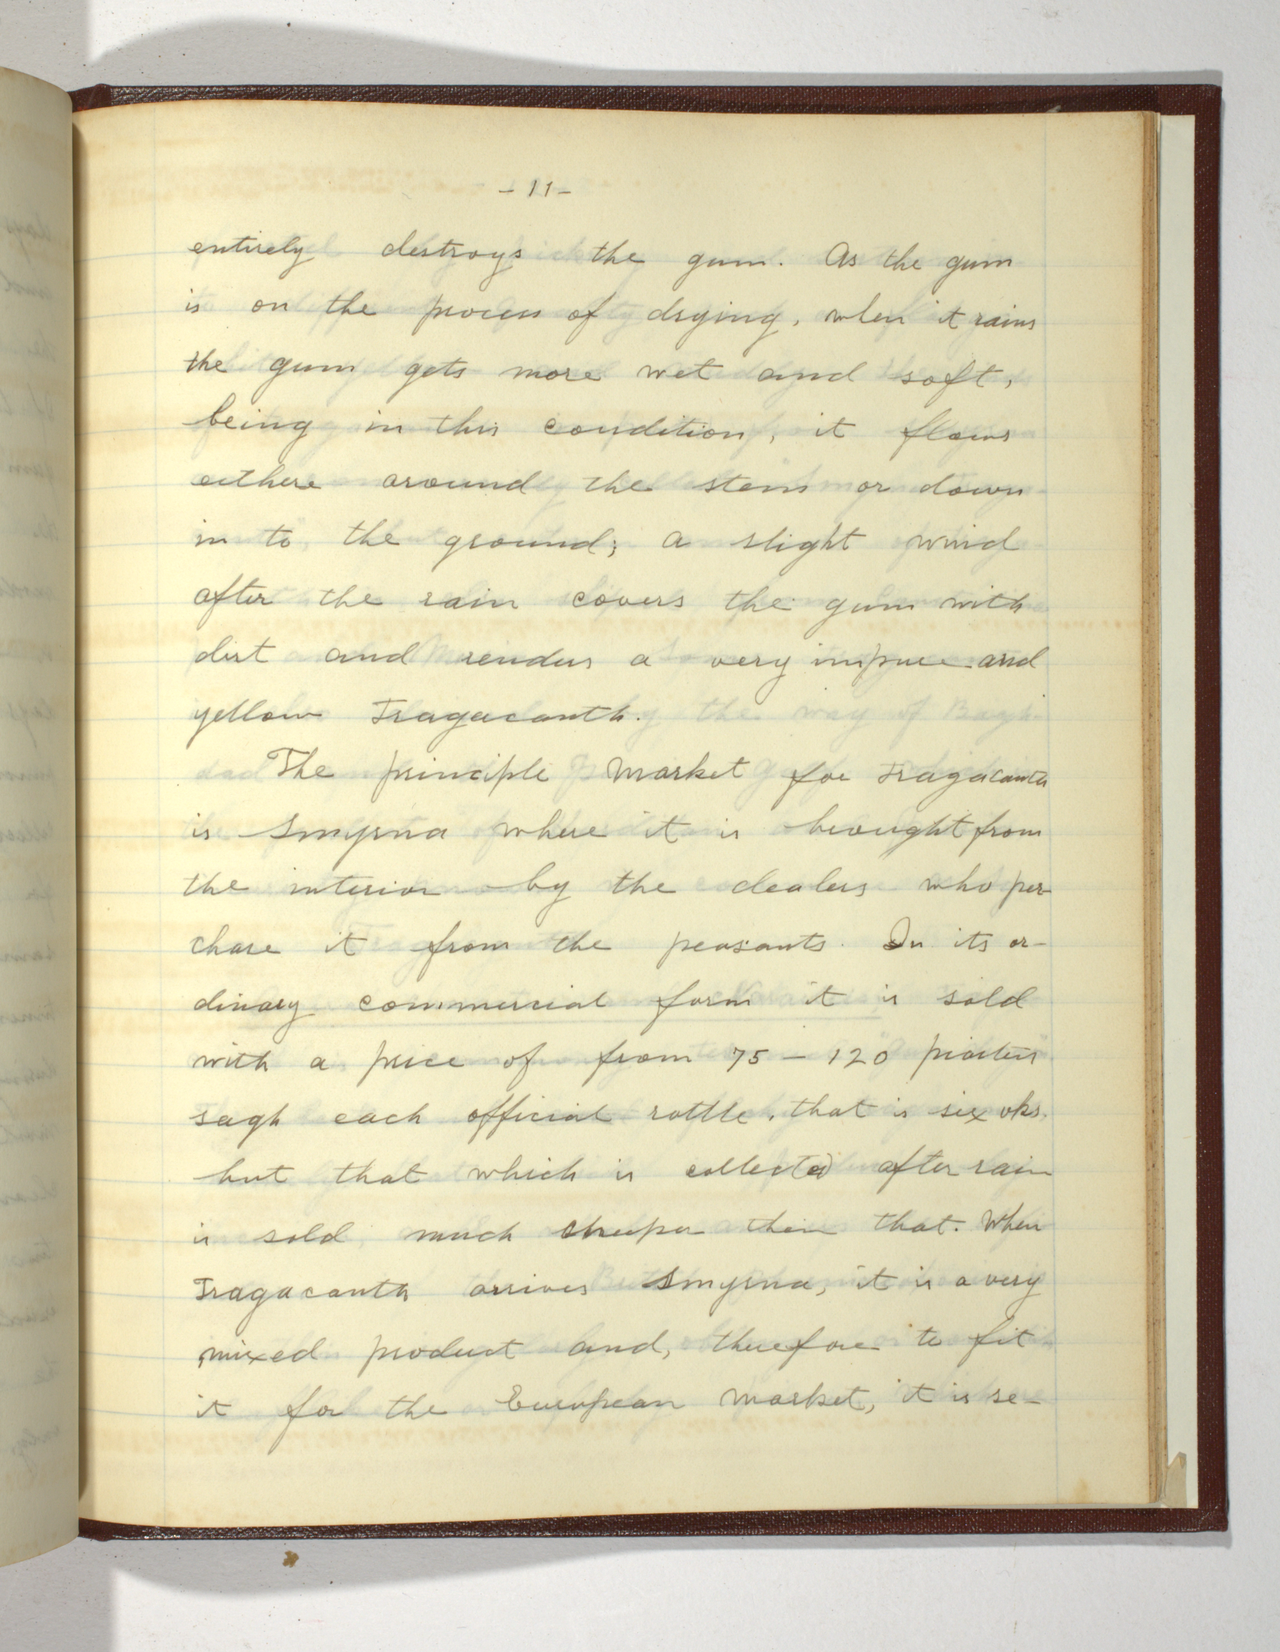 - 11 -
entirely destroys the gum. As the gum
is on the process of drying, when it rains
the gum gets more wet and soft,
being in this condition, it flows
eithere around the stem or down
in to the ground; a slight wind
after the rain covers the gum with
dirt and renders a very impure and
yellow Tragacanth.
The principle Market for Tragacanth
is Smyrna where it is brought from
the interior by the dealers who per
chase it from the peasants. In its or-
dinary commercial form it is sold
with a price of from 75 - 120 piasters
sagh each official rottle, that is six oks.
but that which is collected after rain
is sold much cheeper then that. When
Tragacanth arrives Smyrna, it is a very
mixed product and, therefore to fit
it for the European Market, it is se-